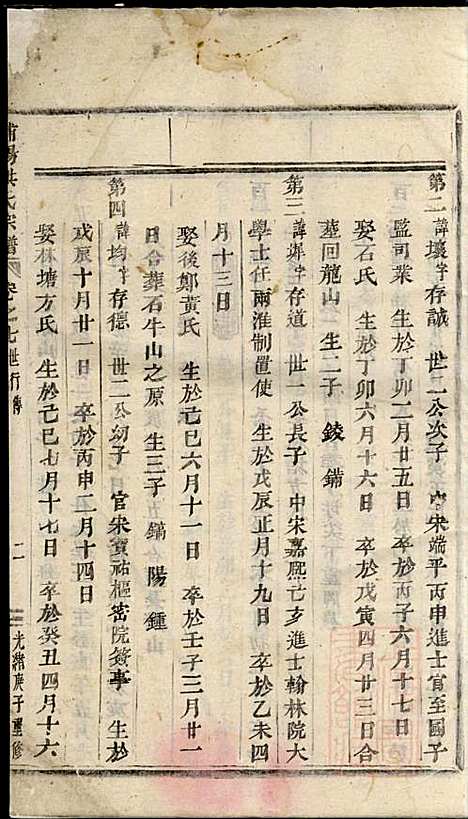 第二 諱壤字存誠 世二公次子 宋端平丙申進士官至國子
監司業 生於丁卯二月廿五日 卒於丙子六月十七日
娶石氏 生於丁卯六月十六日 卒於戊寅四月廿三日合
塟回龍山 生二子 錂 鏋
第三 諱墀字存道 世一公長子 中宋嘉熙己亥進士翰林院大
學士任兩淮制置使 生於戊辰正月十九日 卒於乙未四
月十三日
娶後鄭黃氏 生於己巳六月十一日 卒於壬子三月廿一
日合葬石牛山之原 生三子 鎬 陽 鍾
第四 諱均字存德 世二公幼子 官宋寶祐樞密院簽事 生於
戊辰十月廿一日 卒於丙申二月十四日
娶林塘方氏 生於己巳七月十七日 卒於癸丑四月十六
浦陽洪氏宗譜 卷之 七世行傳 二 光緒庚子重修